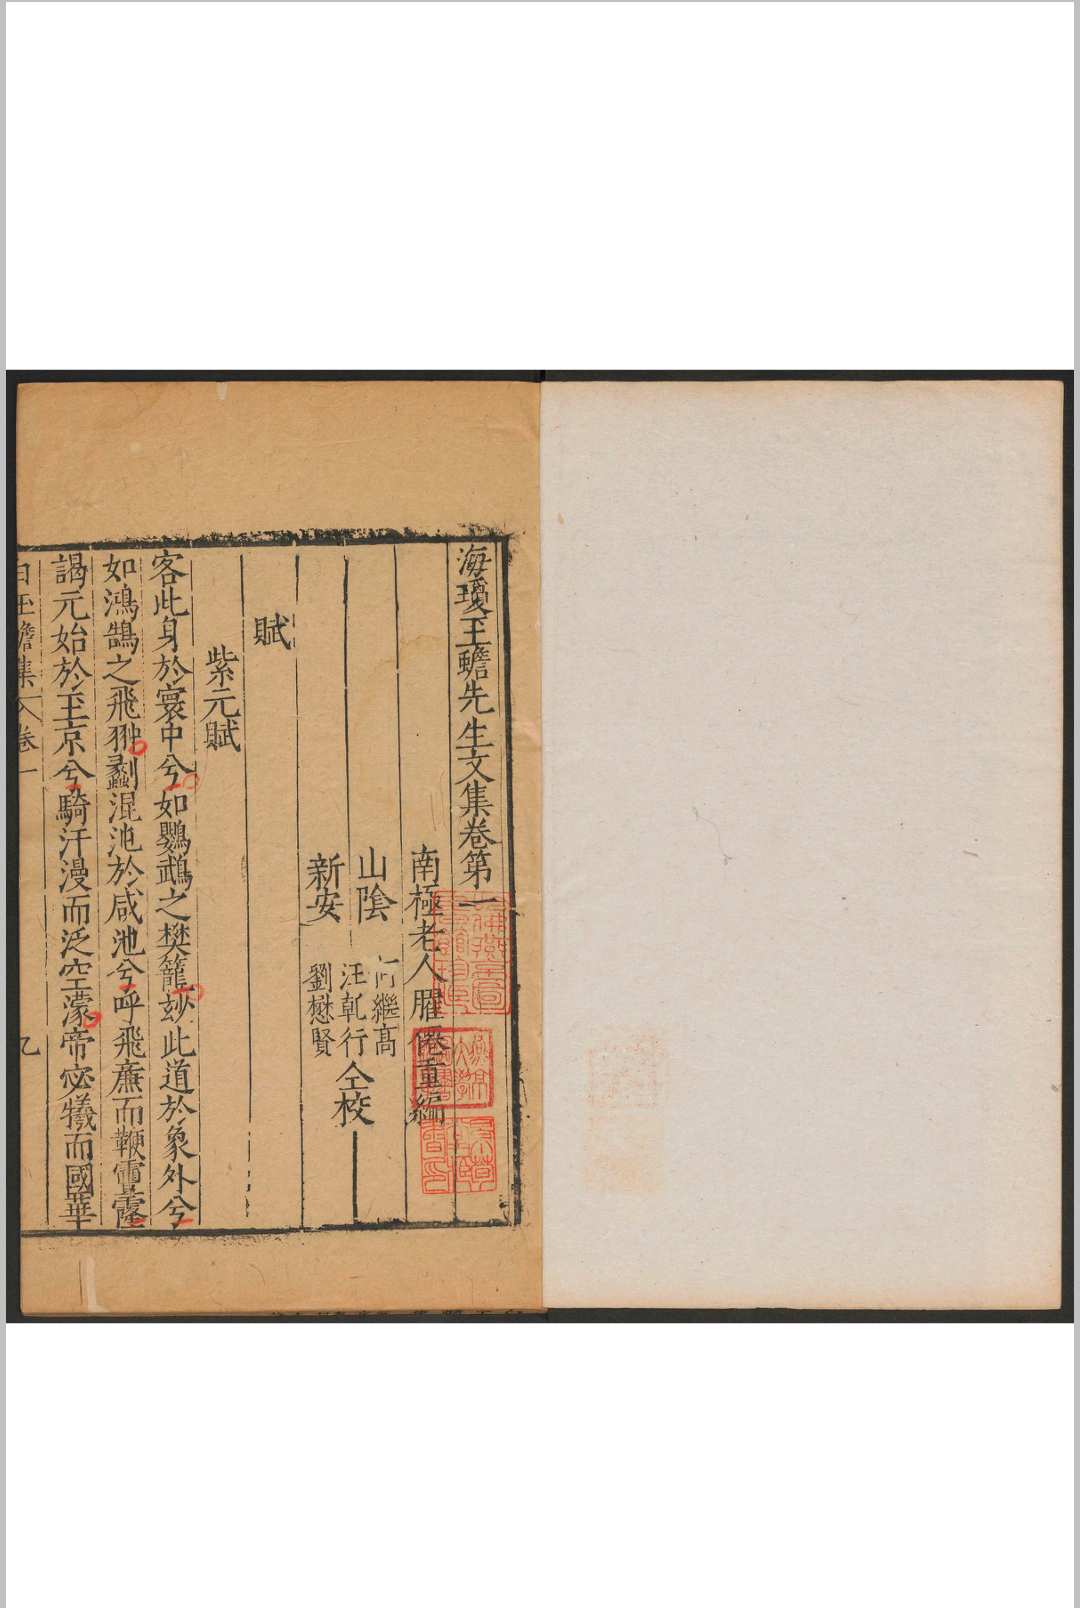 海瓊玉蟾先生文集卷第一
南極老人臞僊重編
山陰 何繼高
新安 汪乹行 劉懋賢 仝校
賦
紫元賦
客此身於寰中兮如鸚鵡之樊籠玅此道於象外兮
如鴻鵠之飛翀剸混沌於咸池兮呼飛廉而鞭雷霳
謁元始於玉京兮騎汗漫而泛空濛帝宓犧而國華
白玉蟾集 卷一